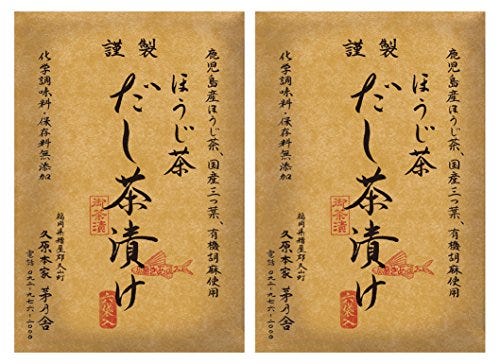 謹製
鹿児島産ほうじ茶、国産三つ葉、有機胡麻使用
ほうじ茶
だし茶漬け
御茶漬
六袋入
化学調味料・保存料無添加
福岡県糟屋郡久山町
久原本家 茅乃舎
電話 〇九二・九七六・二〇〇〇
謹製
鹿児島産ほうじ茶、国産三つ葉、有機胡麻使用
ほうじ茶
だし茶漬け
御茶漬
六袋入
化学調味料・保存料無添加
福岡県糟屋郡久山町
久原本家 茅乃舎
電話 〇九二・九七六・二〇〇〇